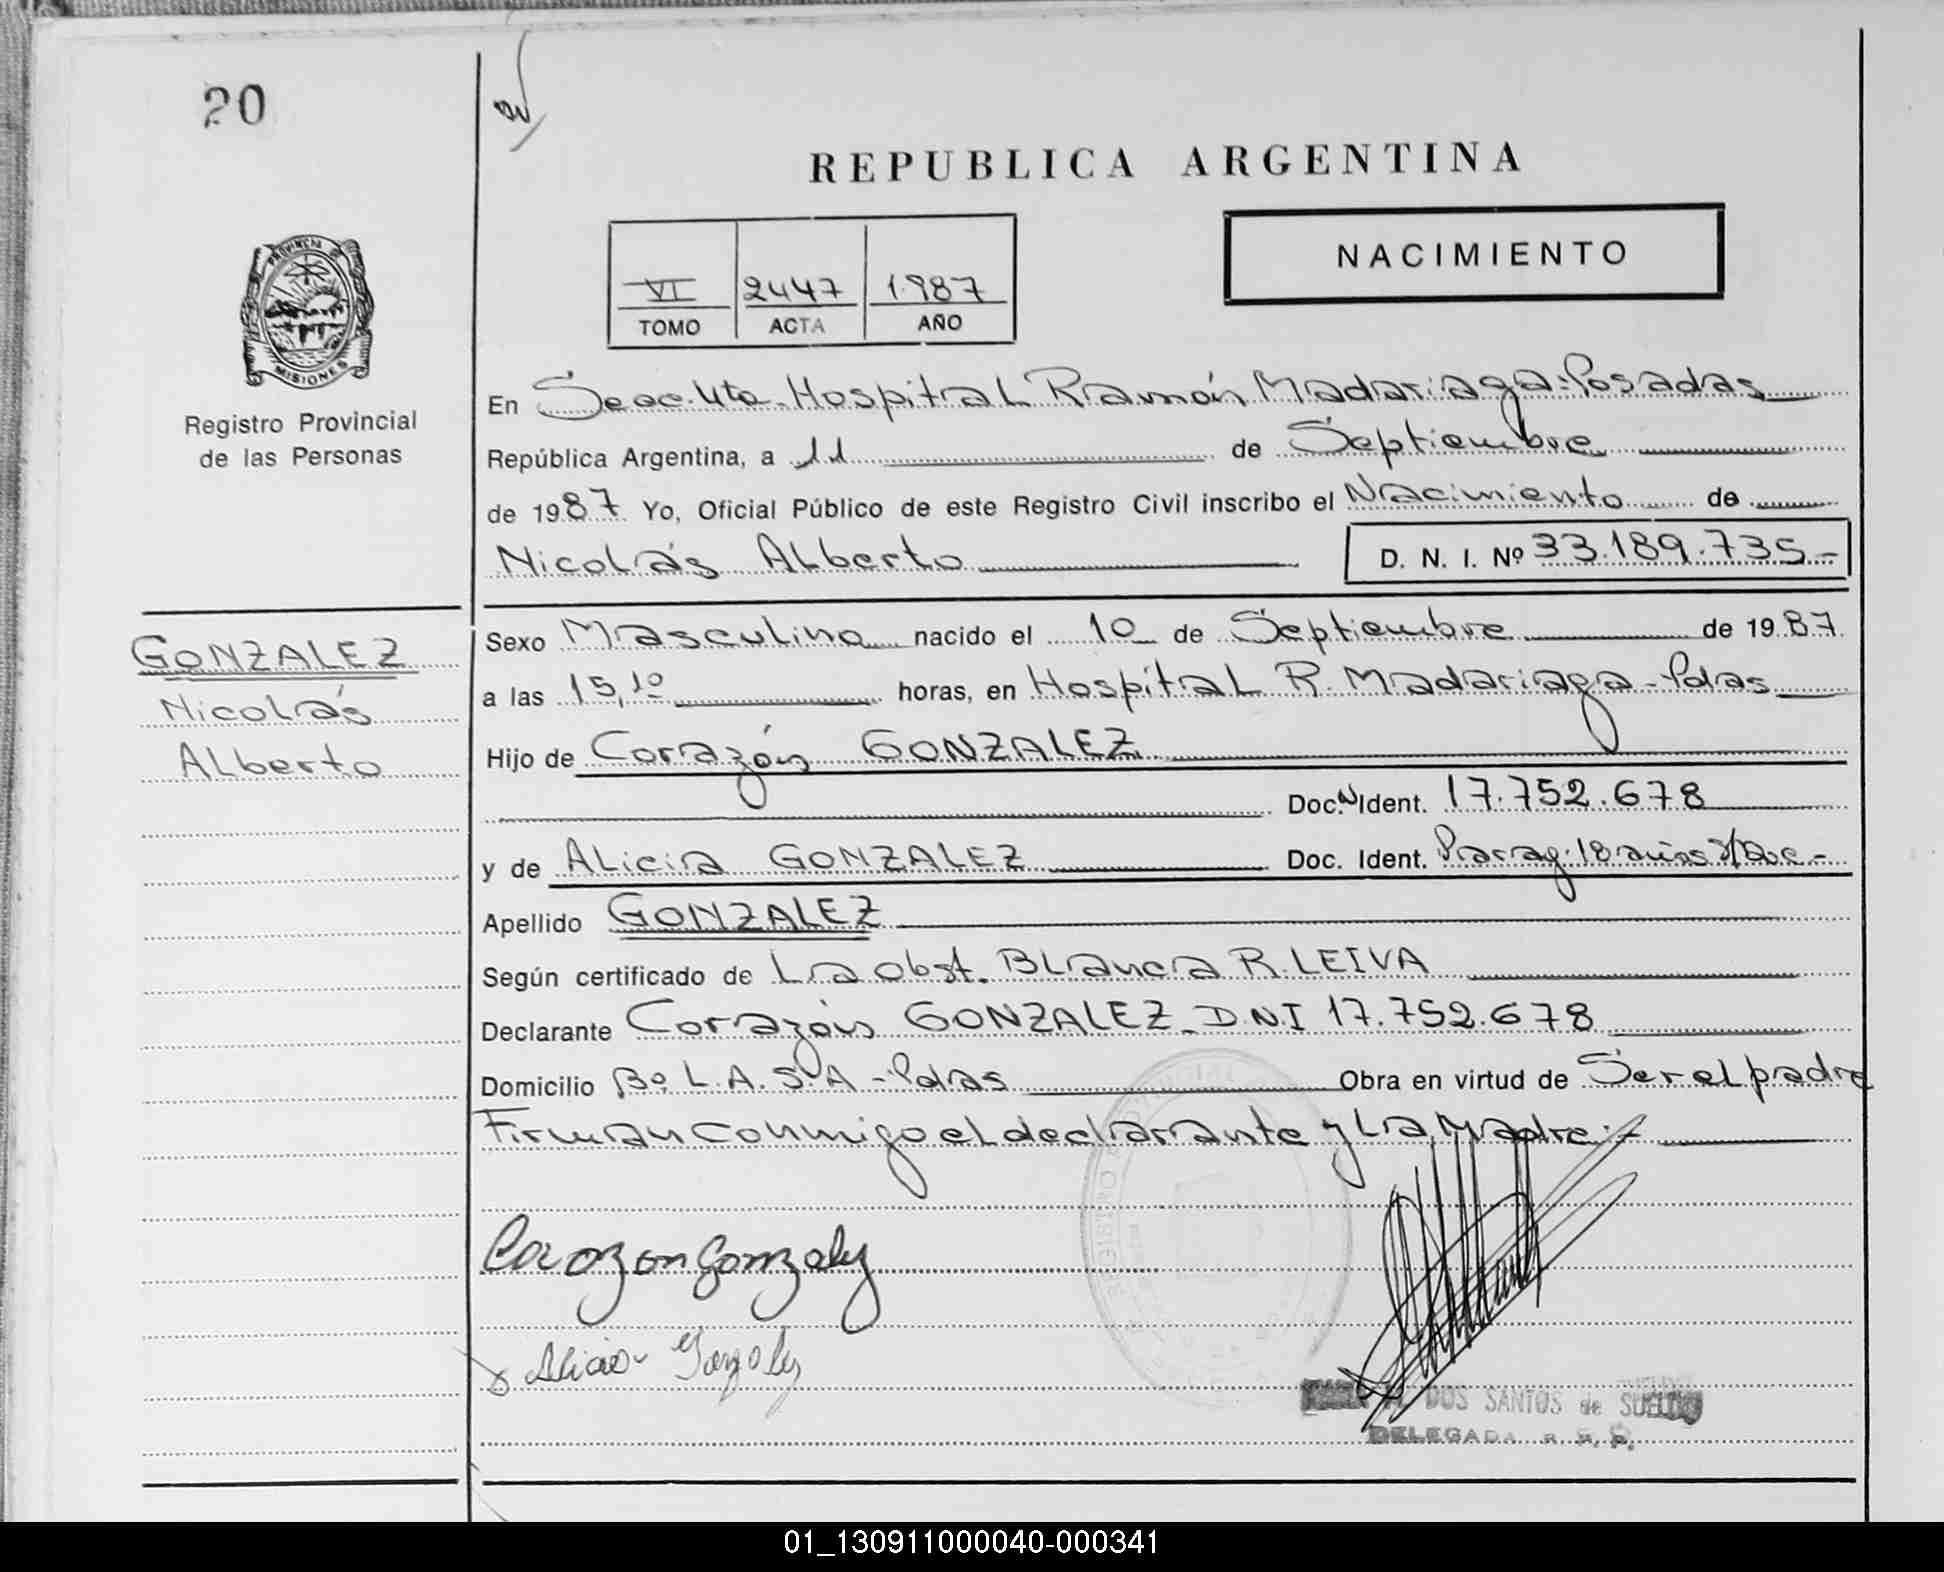 20
REPUBLICA ARGENTINA
NACIMIENTO
VI 2447 1.987
TOMO ACTA AÑO
PROVINCIA DE
MISIONES
Registro Provincial
de las Personas
En Secc. 4ta. Hospital Ramón Madariaga-Posadas
República Argentina, a 11 de Septiembre
de 1987 Yo, Oficial Público de este Registro Civil inscribo el Nacimiento de
Nicolás Alberto D. N. I. Nº 33.189.735.-
GONZALEZ
Nicolás
Alberto
Sexo Masculino nacido el 10 de Septiembre de 1987
a las 15,10 horas, en Hospital R. Madariaga-Pdas
Hijo de Corazón GONZALEZ
Doc. N Ident. 17.752.678
y de Alicia GONZALEZ Doc. Ident. Parag. 18 años s/Doc-
Apellido GONZALEZ
Según certificado de La obst. Blanca R. LEIVA
Declarante Corazón GONZALEZ-D.N.I 17.752.678
Domicilio Bº L.A.S.A-Pdas Obra en virtud de Ser el padre
Firman conmigo el declarante y La Madre.-
Corazon Gonzalez
Alicia Gonzalez
DOS SANTOS de SUELDO
DELEGADA R. P. P.
01_130911000040-000341